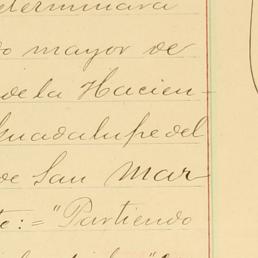 eterminara
o mayor de
de la Hacien-
Guadalupe del
de San Mar
te:= "Partiendo